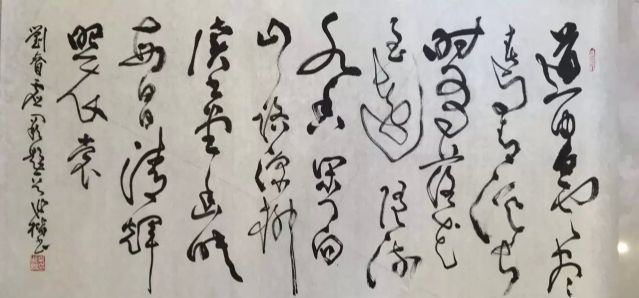 道由白雲盡
春与青溪長
時有落花
至遠隨流
水香閑門向
山路深柳
讀書堂幽映
每白日清輝
照衣裳
劉眘虛闕題